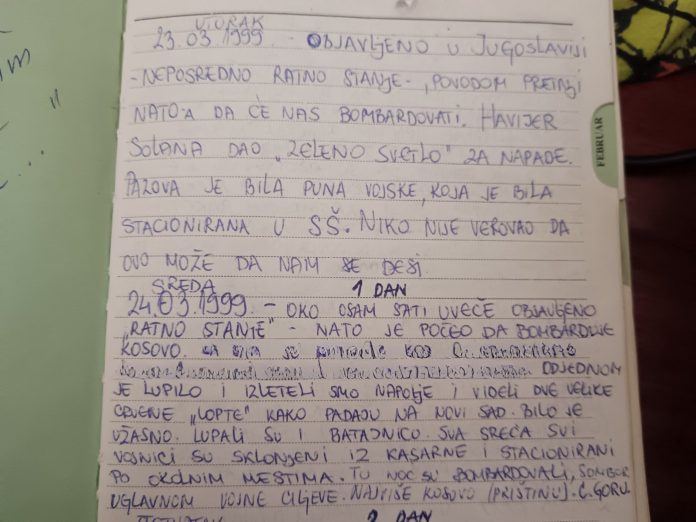 UTORAK
23.03.1999. - OBJAVLJENO U JUGOSLAVIJI
- NEPOSREDNO RATNO STANJE -, POVODOM PRETNJI
NATO-A DA ĆE NAS BOMBARDOVATI. HAVIJER
SOLANA DAO „ZELENO SVETLO" ZA NAPADE.
PAZOVA JE BILA PUNA VOJSKE, KOJA JE BILA
STACIONIRANA U SŠ. NIKO NIJE VEROVAO DA
OVO MOŽE DA NAM SE DESI
SREDA 1 DAN
24.03.1999. - OKO OSAM SATI UVEČE OBJAVLJENO
„RATNO STANJE" - NATO JE POČEO DA BOMBARDUJE
KOSOVO.
ODJEDNOM
JE LUPILO I IZLETELI SMO NAPOLJE I VIDELI DVE VELIKE
CRVENE „LOPTE" KAKO PADAJU NA NOVI SAD. BILO JE
UŽASNO. LUPALI SU I BATAJNICU. SVA SREĆA SVI
VOJNICI SU SKLONJENI IZ KASARNE I STACIONIRANI
PO OKOLNIM MESTIMA. TU NOĆ SU BOMBARDOVALI, SOMBOR
UGLAVNOM VOJNE CILJEVE. NAJVIŠE KOSOVO (PRIŠTINU). C.GORU.
2 DAN
FEBRUAR